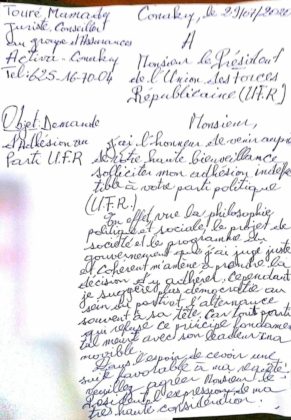 Touré Mamady
Juriste, Conseiller
au groupe d'Assurances
Activa-Conakry
Tel: 625-16-70-04
Conakry, le 29/07/2020
A
Monsieur le Président
de l'Union des Forces
Républicaine (U.F.R)
Objet: Demande
d'Adhésion au
Parti U.F.R
Monsieur,
j'ai l'honneur de venir auprès
de votre haute bienveillance
solliciter mon adhésion indéfec
tible à votre parti politique
(U.F.R.)
En effet, vue la philosophie
politique et sociale, le projet de
société et le programme du
gouvernement que j'ai jugé juste
et cohérent m'amène à prendre la
décision d'y adhérer. Cependant
je suggère plus démocratie au
sein et surtout l'alternance
souvent à sa tête. Car tout parti
qui refuse ce principe fondamen
tal meurt avec son leader ina
movible.
Dans l'espoir de
suite favorable à ma requête
veuillez agréer Monsieur le
Président l'expression de ma
très haute considération.